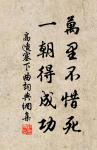 萬里不惜死
一朝得成功
高適塞下曲詞典網集